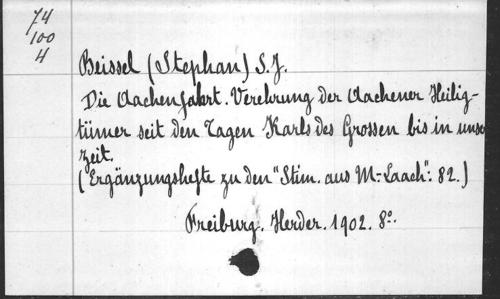 74
100
H
Beissel (Stephan) S.J.
Die Aachenfahrt. Verehrung der Aachener Heilig-
tümer seit den Tagen Karls des Grossen bis in unse
Zeit.
(Ergänzungshefte zu den "Stim. aus M.-Laach": 82.)
Freiburg. Herder. 1902. 8°.